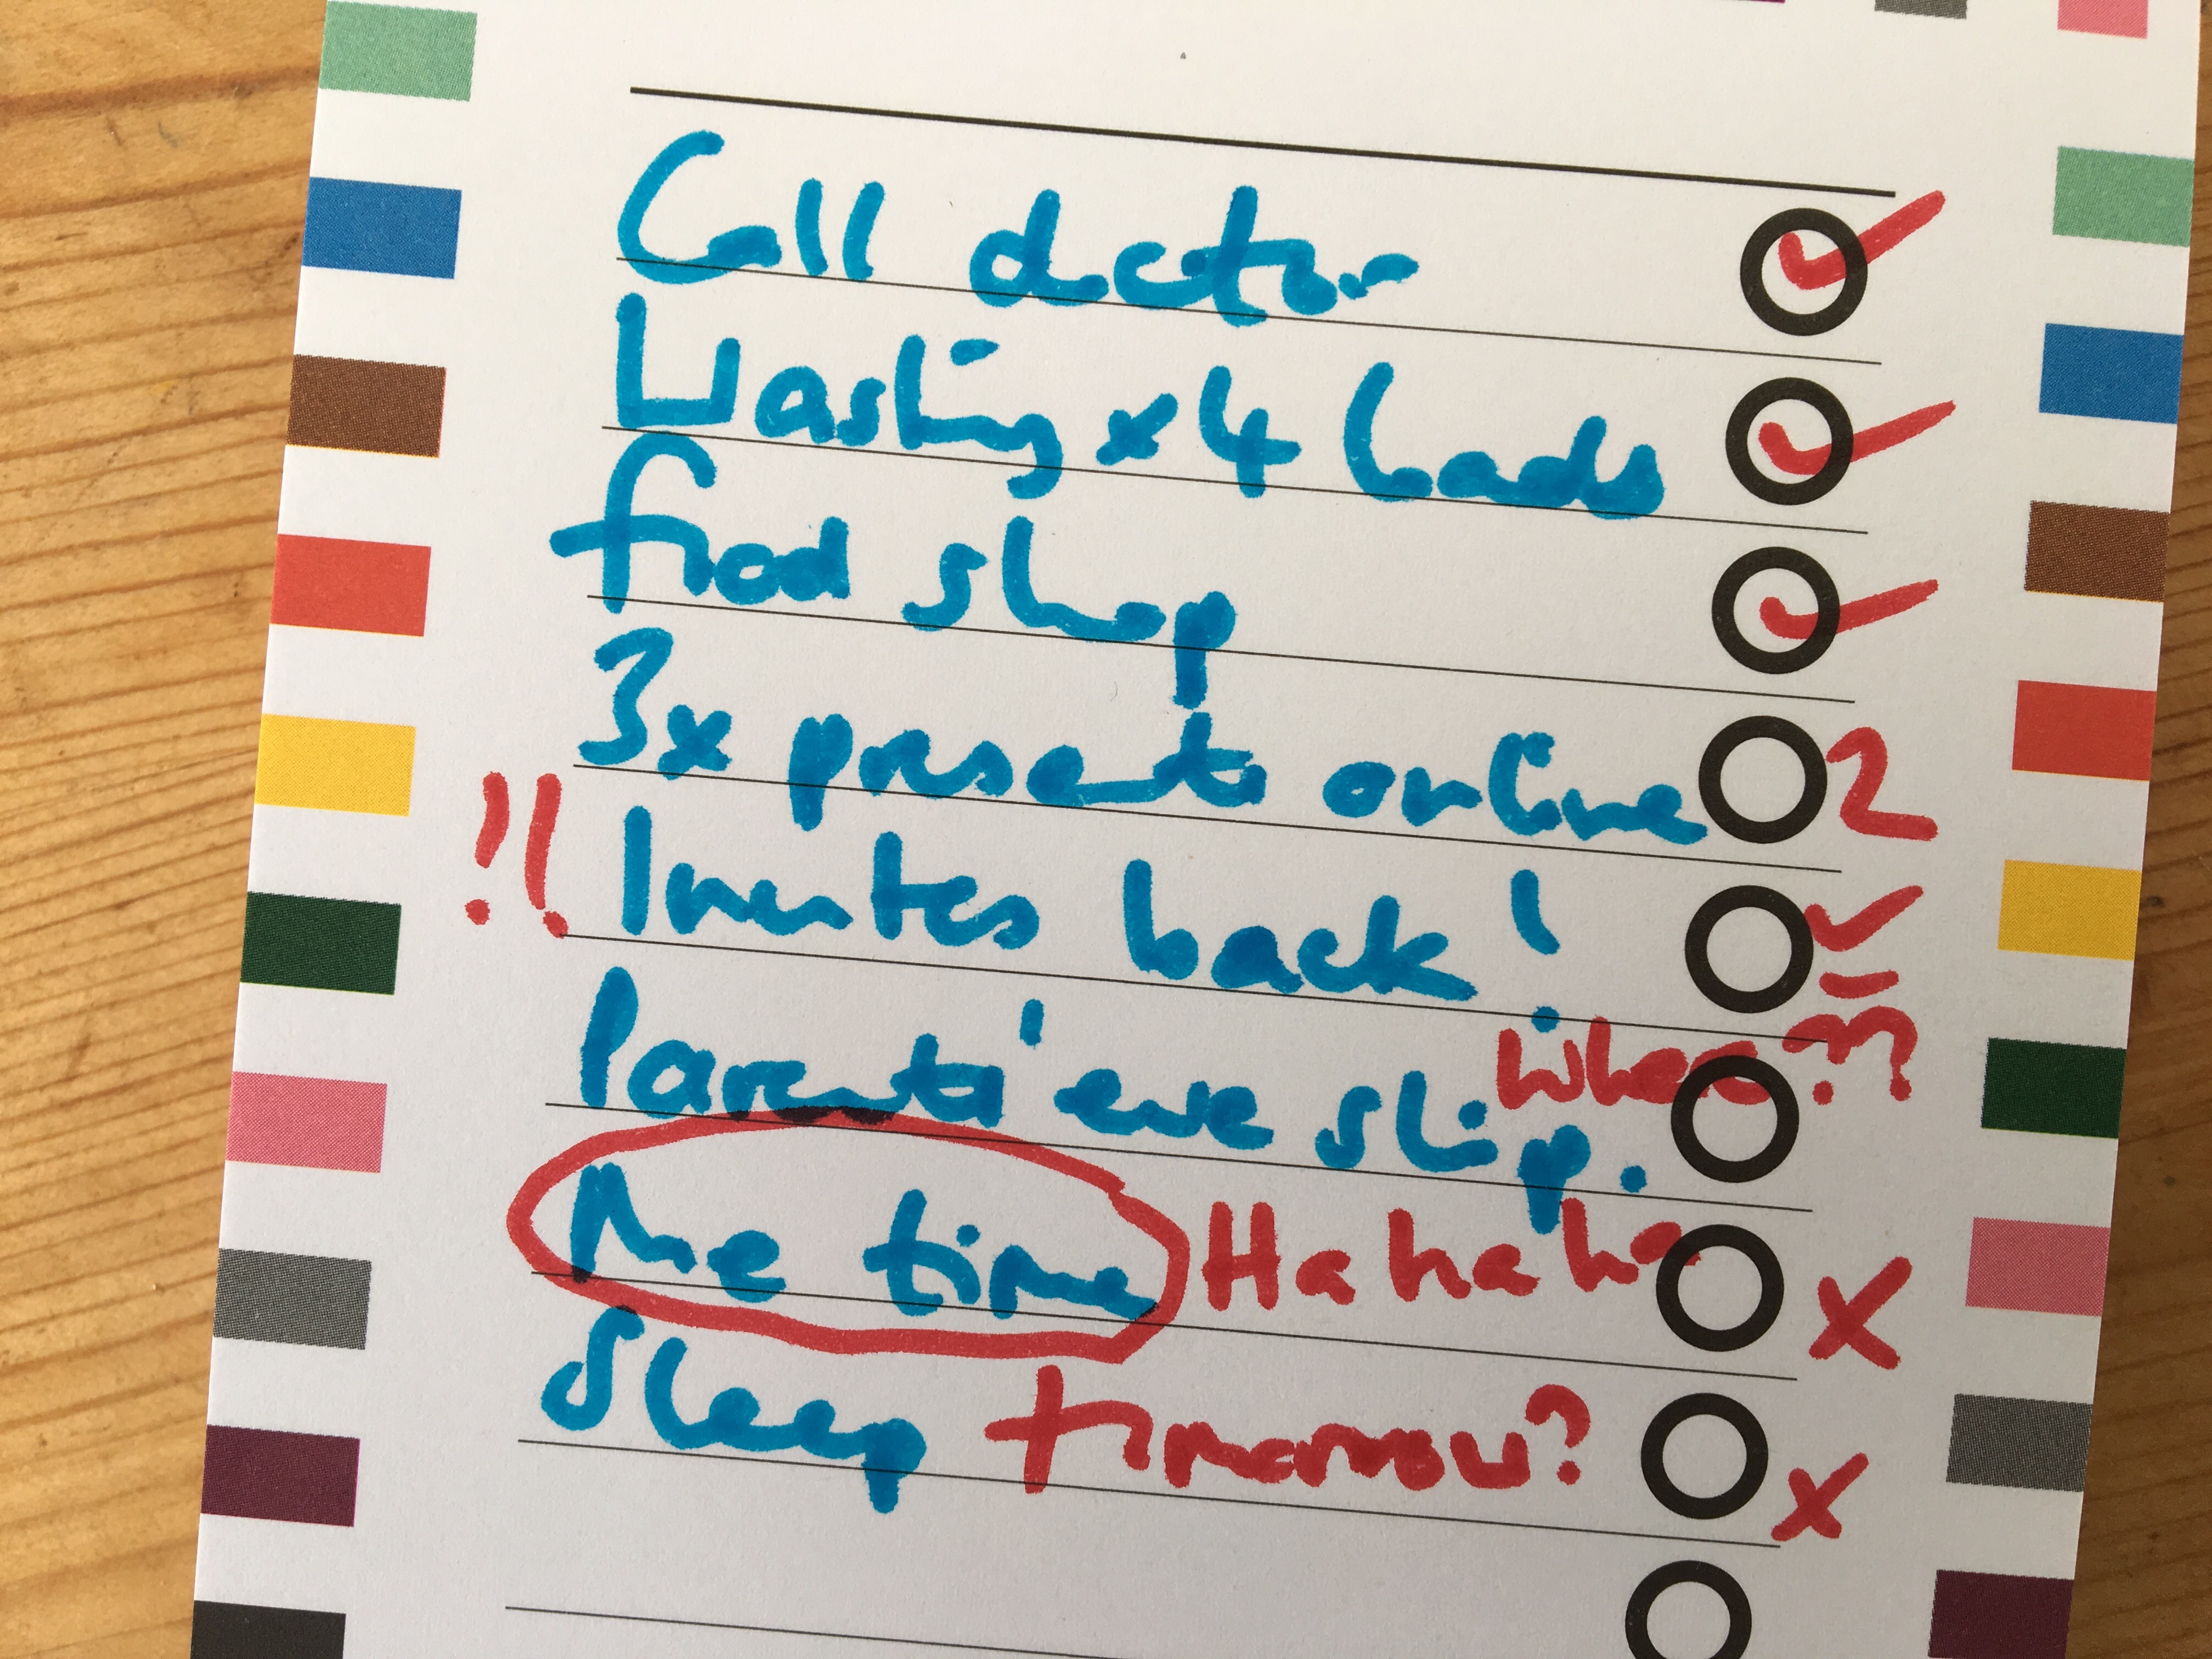 Call doctor ✓
Washing x 4 loads ✓
food shop ✓
3x presents online 2
!! Invites back! ✓
Parents' eve slip. When??
Me time Hahaha x
Sleep tomorrow? x